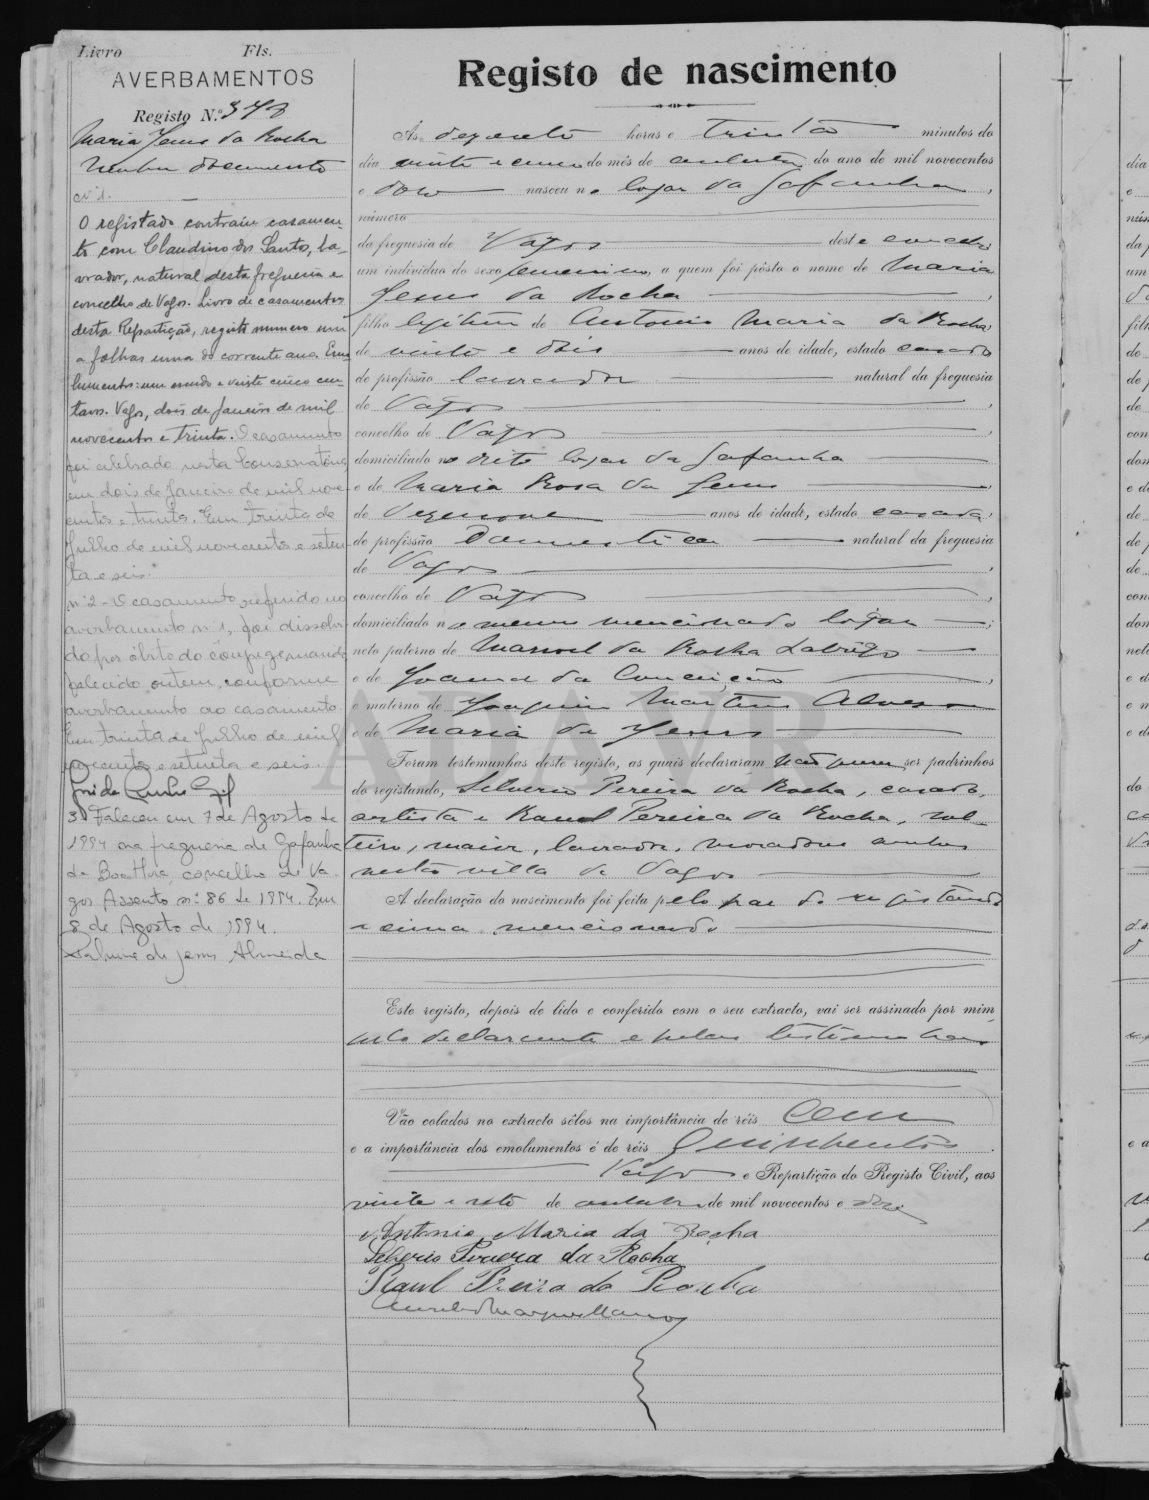 Livro Fls.
AVERBAMENTOS
Registo N.º 378
Maria Jesus da Rocha
Nenhum documento
nº 1.
O registado contraíu casamen-
to com Claudino dos Santos, la-
vrador, natural desta freguesia e
concelho de Vagos. Livro de casamentos
desta Repartição, registo numero um
a folhas uma do corrente ano. Emo-
lumentos: um escudo e vinte cinco cen-
tavos. Vagos, dois de Janeiro de mil
novecentos e trinta. O casamento
foi celebrado nesta Conservatória
em dois de Janeiro de mil nove-
centos e trinta. Em trinta de
Julho de mil novecentos e seten-
ta e seis.
nº 2 - O casamento referido no
averbamento nº 1, foi dissolvi-
do por óbito do conjuge marido
falecido ontem, conforme
averbamento ao casamento.
Em trinta de Julho de mil
novecentos e setenta e seis.
3 Faleceu em 7 de Agosto de
1994 na freguesia de Gafanha
da Boa Hora, concelho de Va-
gos Assento nº 86 de 1994. Em
8 de Agosto de 1994.
de Jesus Almeida
Registo de nascimento
Ás dezoito horas e trinta minutos do
dia vinte e cinco do mês de outubro do ano de mil novecentos
e doze nasceu no logar da Gafanha,
número
da freguesia de Vagos deste concelho
um indivíduo do sexo femenino, a quem foi pôsto o nome de Maria
Jesus da Rocha,
filho legitimo de Antonio Maria da Rocha,
de vinte e dois anos de idade, estado casado
de profissão lavrador natural da freguesia
de Vagos,
concelho de Vagos,
domiciliado no dito logar da Gafanha
e de Maria Rosa de Jesus,
de dezenove anos de idade, estado casada,
de profissão Domestica natural da freguesia
de Vagos,
concelho de Vagos,
domiciliado no mesmo mencionado logar;
neto paterno de Manoel da Rocha Labrêgo
e de Joana da Conceição,
e materno de Joaquim Martins
e de Maria de Jesus
Foram testemunhas deste registo, as quais declararam não serem ser padrinhos
do registando, Silverio Pereira da Rocha, casado,
artista e Raul Pereira da Rocha, sol-
teiro, maior, lavrador, moradores ambos
nesta villa de Vagos
A declaração do nascimento foi feita pelo pae do registando
acima mencionado
Este registo, depois de lido e conferido com o seu extracto, vai ser assinado por mim,
pelo declarante e pelas testemunhas
Vão colados no extracto sêlos na importância de réis Cem
e a importância dos emolumentos é de réis Quinhentos.
Vagos e Repartição do Registo Civil, aos
vinte e sete de outubro de mil novecentos e doze
Antonio Maria da Rocha
Silverio Pereira da Rocha
Raul Pereira da Rocha
ADAVR